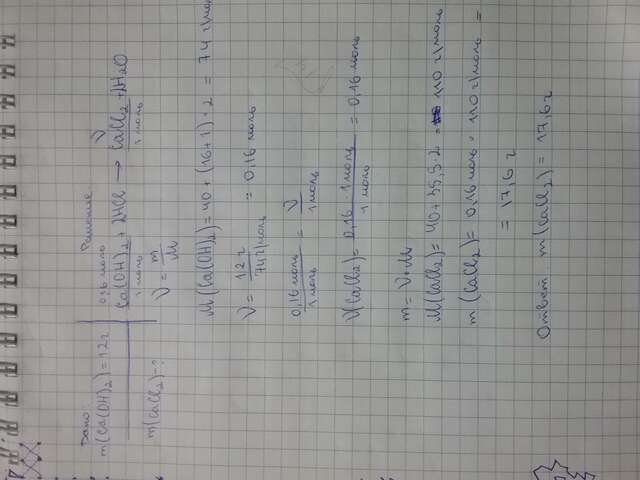 Дано:
m(Ca(OH)₂)=12г
m(CaCl₂)-?
Решение
0,16 моль ν
Ca(OH)₂ + 2HCl → CaCl₂ + 2H₂O
1 моль 1 моль
ν = m/M
M(Ca(OH)₂) = 40 + (16+1)·2 = 74 г/моль
ν = 12 г / 74 г/моль = 0,16 моль
0,16 моль / 1 моль = ν / 1 моль
ν(CaCl₂) = 0,16 · 1 моль / 1 моль = 0,16 моль
m = ν · M
M(CaCl₂) = 40 + 35,5·2 = 110 г/моль
m(CaCl₂) = 0,16 моль · 110 г/моль =
= 17,6 г
Ответ m(CaCl₂) = 17,6 г